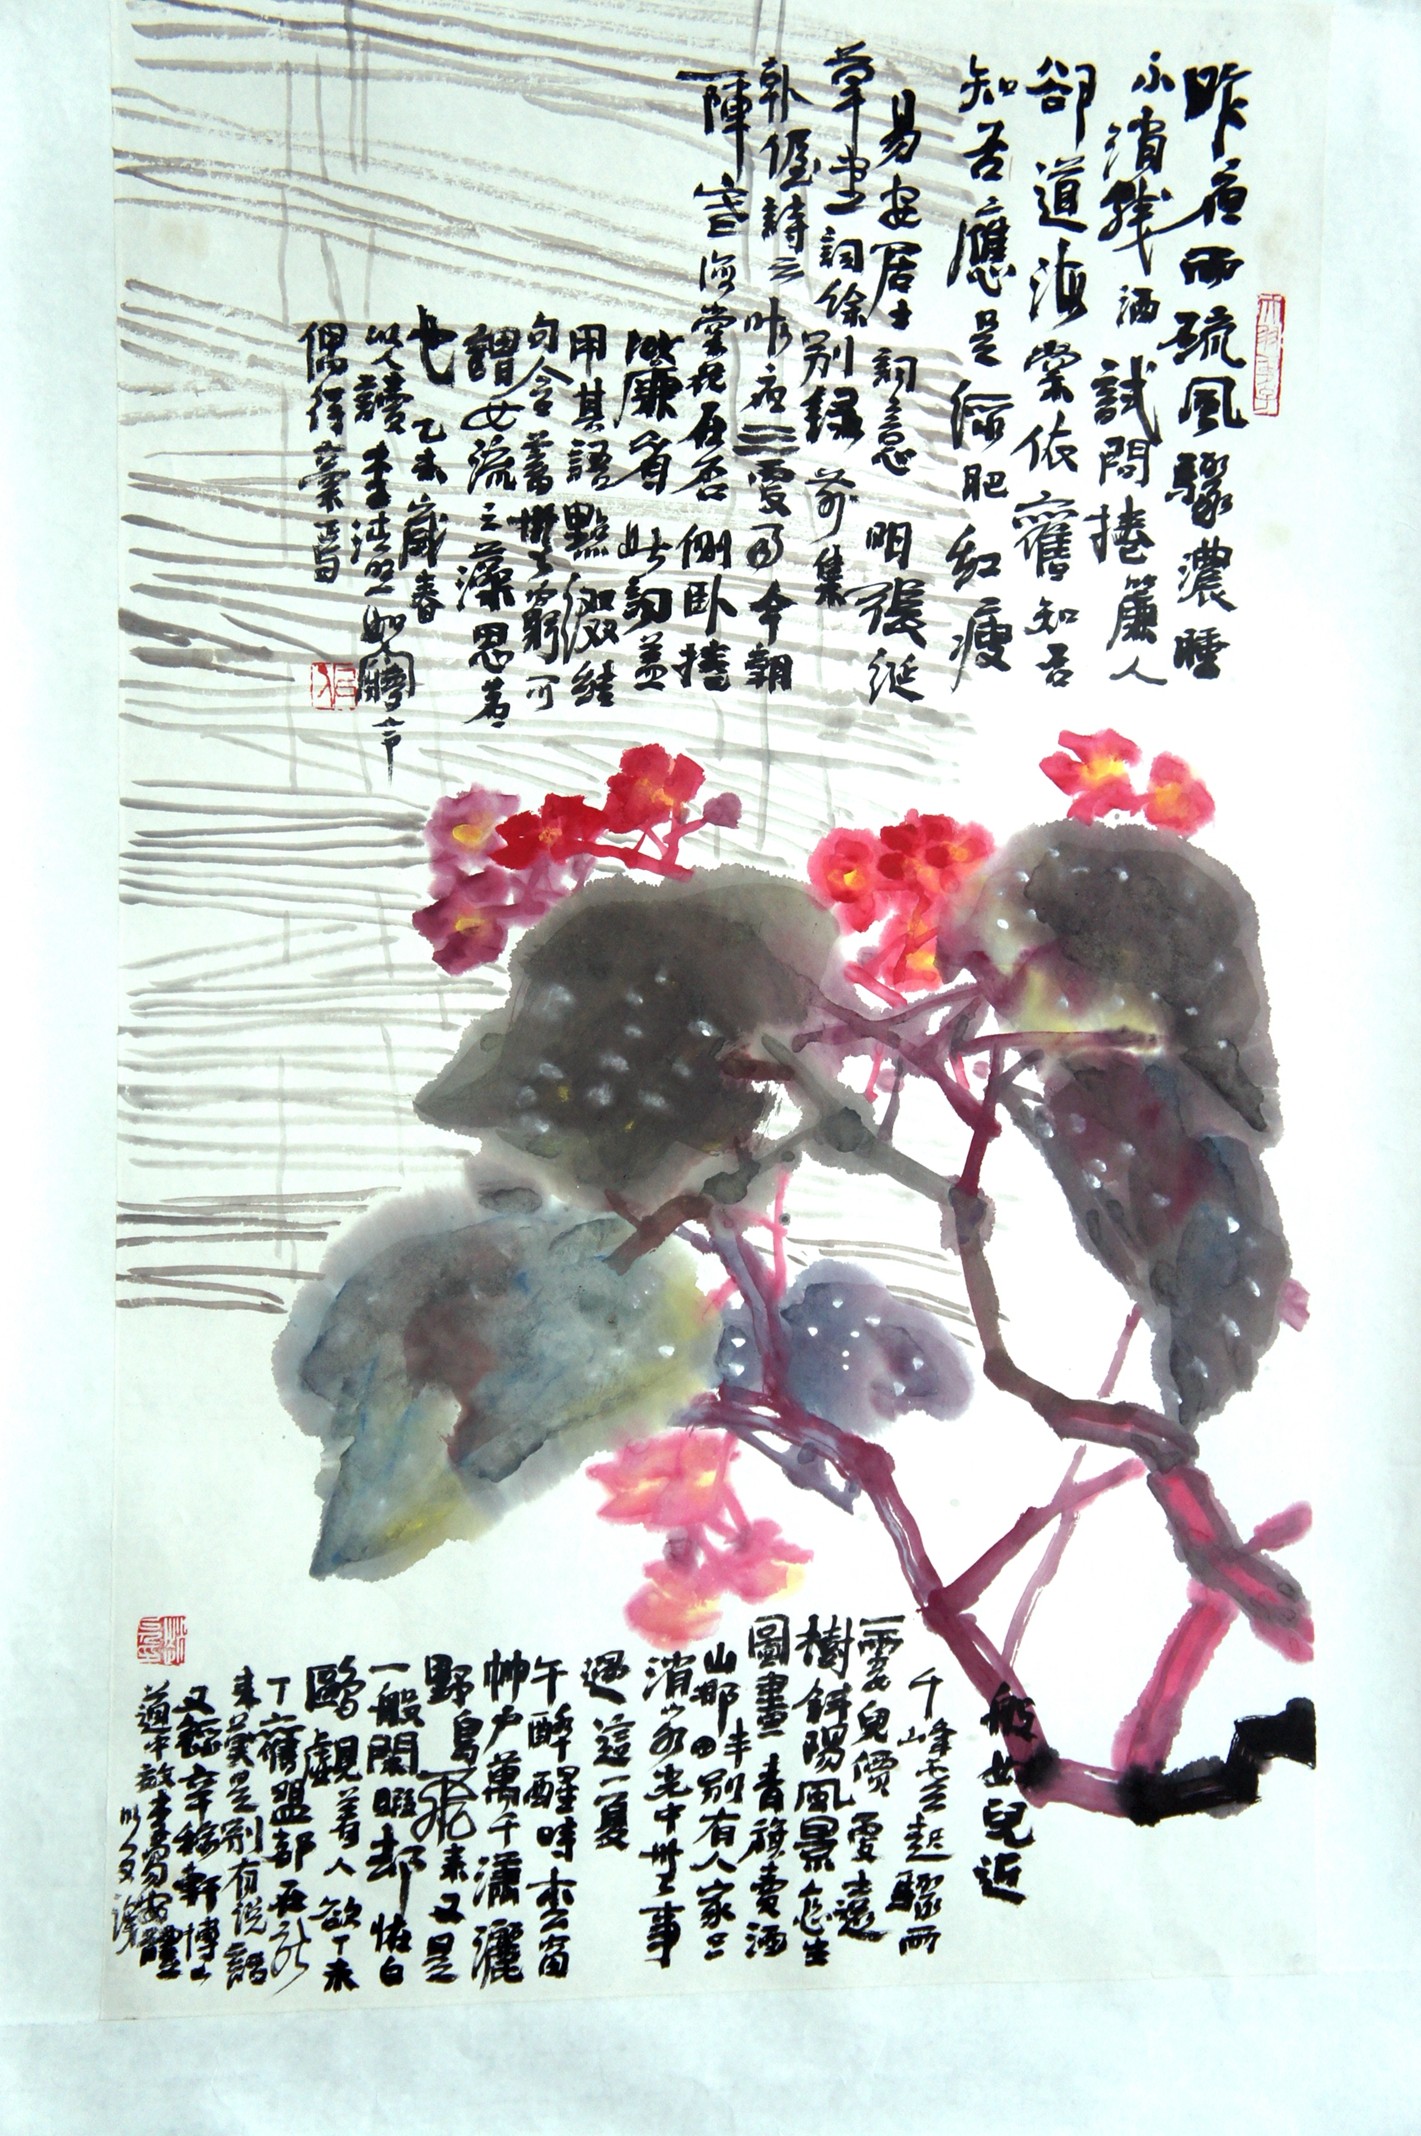 昨夜雨疏風驟濃睡
不消殘酒試問捲簾人
卻道海棠依舊知否
知否應是綠肥紅瘦
易安居士詞意 明張綖
草堂詞馀別錄 前集
韩偓詩云昨夜三更雨今朝
一陣寒海棠花在否側卧捲
簾看此詞蓋
用其語點綴結
句含蓄無窮可
謂女流之藻思者
也 乙未歲春
以人讀李清照如夢令
偶得稾焉
千峰雲起驟雨
一霎兒價更遠
樹斜陽風景怎生
圖畫青旗賣酒
山那畔別有人家只
消山水光中無事
過這一夏
午醉醒時松窗
竹户萬千瀟灑
野鳥飛來又是
一般閑暇却怪白
鷗覷着人欲下未
下舊盟都在新
來莫是別有說話
又錄辛稼軒博山
道中效李易安體
以人又漢
般如兒近